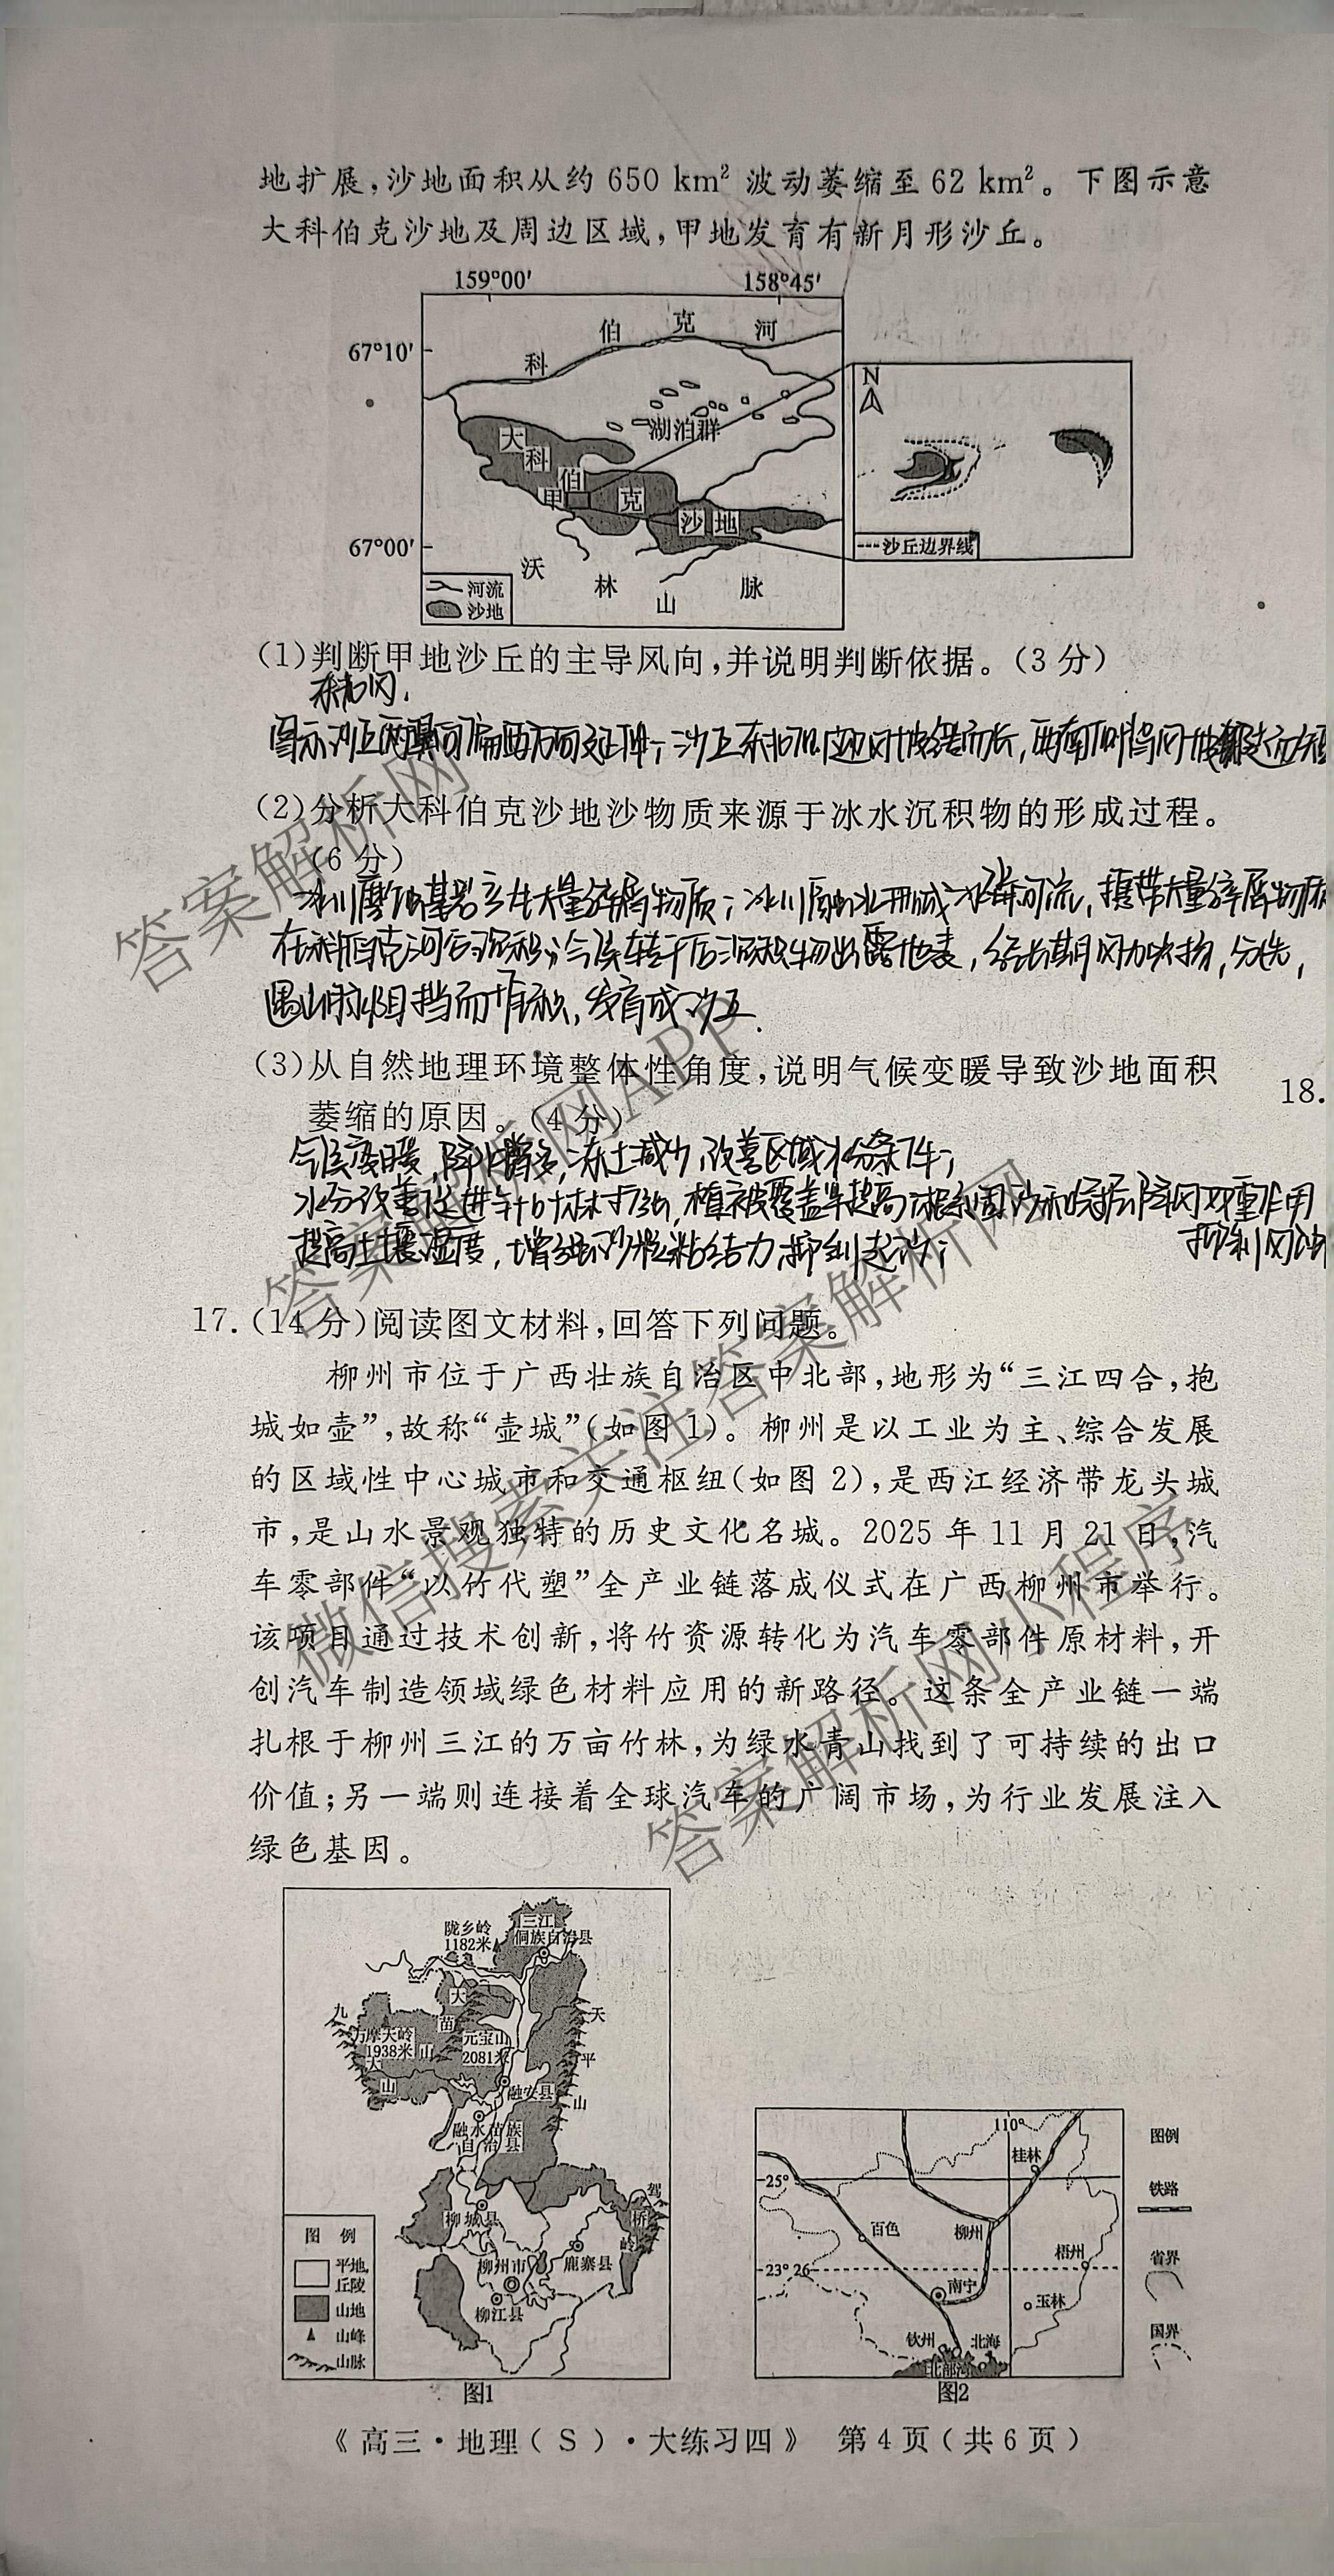 地扩展,沙地面积从约 650 km² 波动萎缩至 62 km²。下图示意
大科伯克沙地及周边区域,甲地发育有新月形沙丘。
159°00′ 158°45′
67°10′
67°00′
科 伯 克 河
湖泊群
大 科 伯 克 沙 地
甲
沃 林 山 脉
河流
沙地
N
沙丘边界线
(1)判断甲地沙丘的主导风向,并说明判断依据。(3 分)
东北风.
(2)分析大科伯克沙地沙物质来源于冰水沉积物的形成过程。
(6 分)
在科伯克河谷沉积;气候转干后沉积物出露地表,经长期风力吹扬,分选,
遇山脉阻挡而堆积,发育成沙丘.
(3)从自然地理环境整体性角度,说明气候变暖导致沙地面积
萎缩的原因。(4 分)
气候变暖,降水增多,冻土减少,改善区域水分条件;
提高土壤湿度,增强沙粒粘结力,抑制起沙;
抑制风蚀
18.
17.(14 分)阅读图文材料,回答下列问题。
柳州市位于广西壮族自治区中北部,地形为“三江四合,抱
城如壶”,故称“壶城”(如图 1)。柳州是以工业为主、综合发展
的区域性中心城市和交通枢纽(如图 2),是西江经济带龙头城
市,是山水景观独特的历史文化名城。2025 年 11 月 21 日,汽
车零部件“以竹代塑”全产业链落成仪式在广西柳州市举行。
该项目通过技术创新,将竹资源转化为汽车零部件原材料,开
创汽车制造领域绿色材料应用的新路径。这条全产业链一端
扎根于柳州三江的万亩竹林,为绿水青山找到了可持续的出口
价值;另一端则连接着全球汽车的广阔市场,为行业发展注入
绿色基因。
陇乡岭
1182米
三江
侗族自治县
九 万 大 山
摩天岭
1938米
大 苗 山
元宝山
2081米
天 平 山
融安县
融水苗族
自治县
柳城县
驾 桥 岭
柳州市
鹿寨县
柳江县
图 例
平地、
丘陵
山地
山峰
山脉
图1
110°
25°
23°26′
桂林
百色
柳州
梧州
南宁
玉林
钦州
北海
北部湾
图例
铁路
省界
国界
图2
《高三·地理(S)·大练习四》 第 4 页(共 6 页)
答案解析网
答案解析网APP
微信搜索关注答案解析网
答案解析网小程序